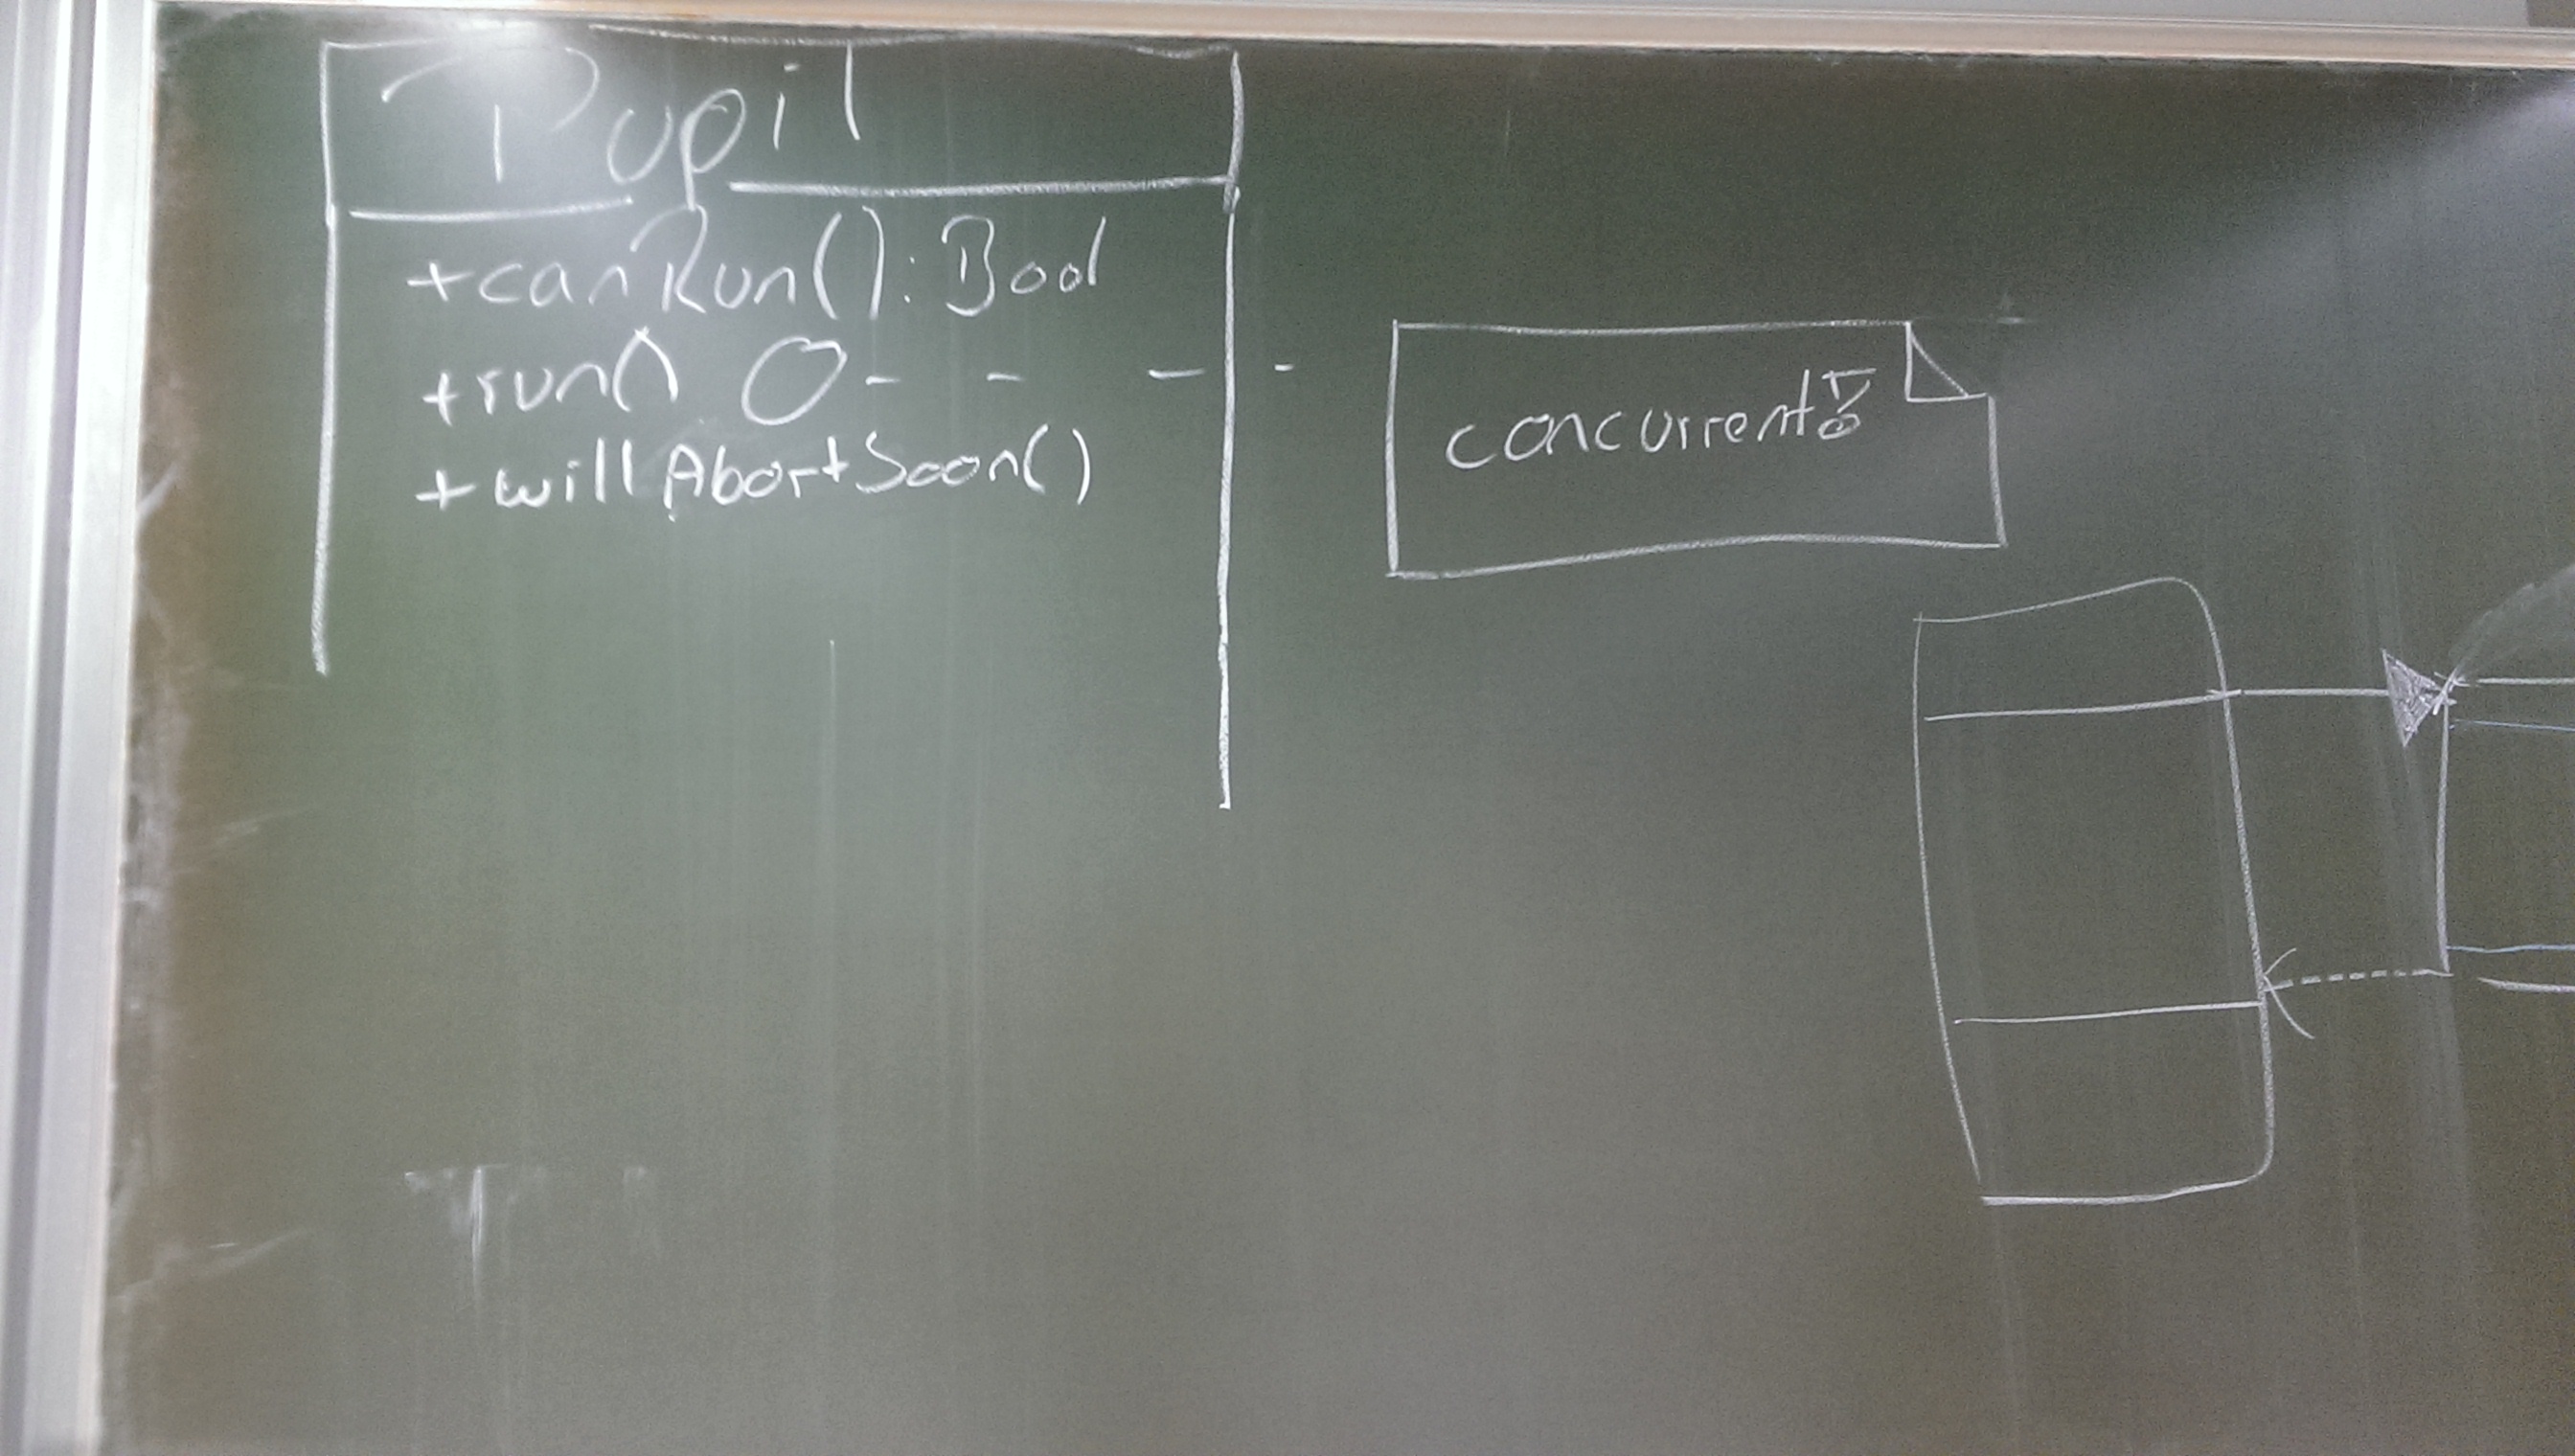 Pupil
+canRun(): Bool
+run()
+willAbortSoon()
concurrent!